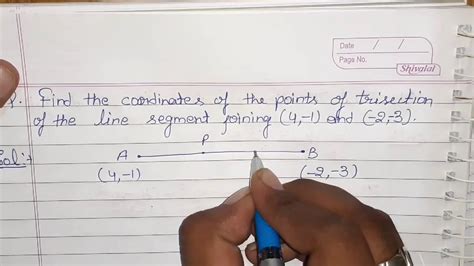 Date / /
Page No.
Shivalal
Q. Find the coordinates of the points of trisection
of the line segment joining (4,-1) and (-2,-3).
Sol:-
P
A B
(4,-1) (-2,-3)